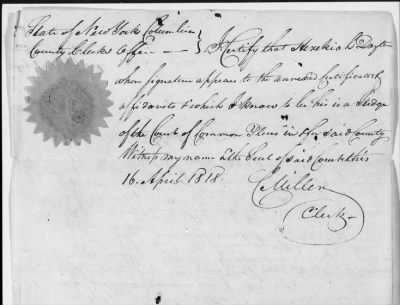 State of New York Columbia
County Clerks Office — } I Certify that Hezekiah L Dayton
whose signature appears to the annexed certificate &
affidavits & which I know to be his is a Judge
of the Court of Common Pleas in & for said County
Witness my name & the Seal of said Court this
16 April 1818.
C Miller
Clerk